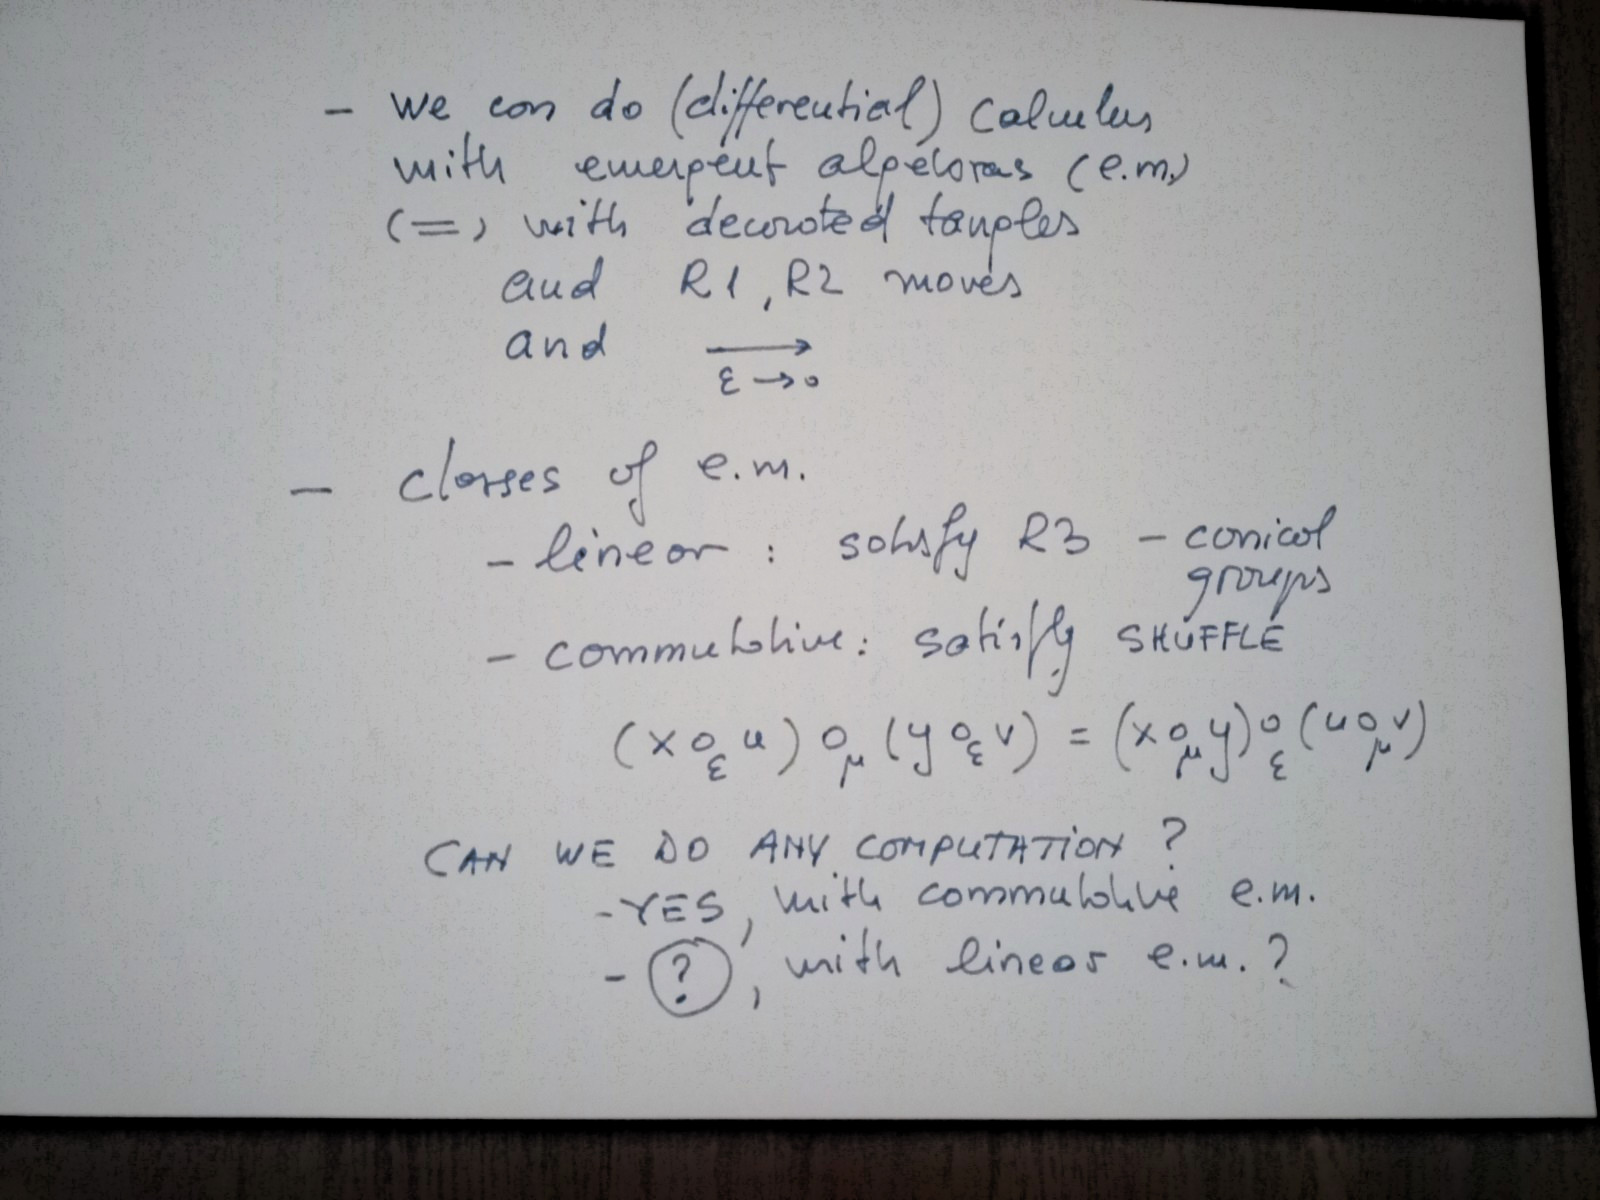 - we can do (differential) calculus
with emergent algebras (e.m.)
(=) with decorated tangles
and R1, R2 moves
and →
ε → 0
- classes of e.m.
- linear : satisfy R3 - conical
groups
- commutative: satisfy SHUFFLE
(x o_ε u) o_μ (y o_ε v) = (x o_μ y) o_ε (u o_μ v)
CAN WE DO ANY COMPUTATION ?
- YES, with commutative e.m.
- ?, with linear e.m. ?